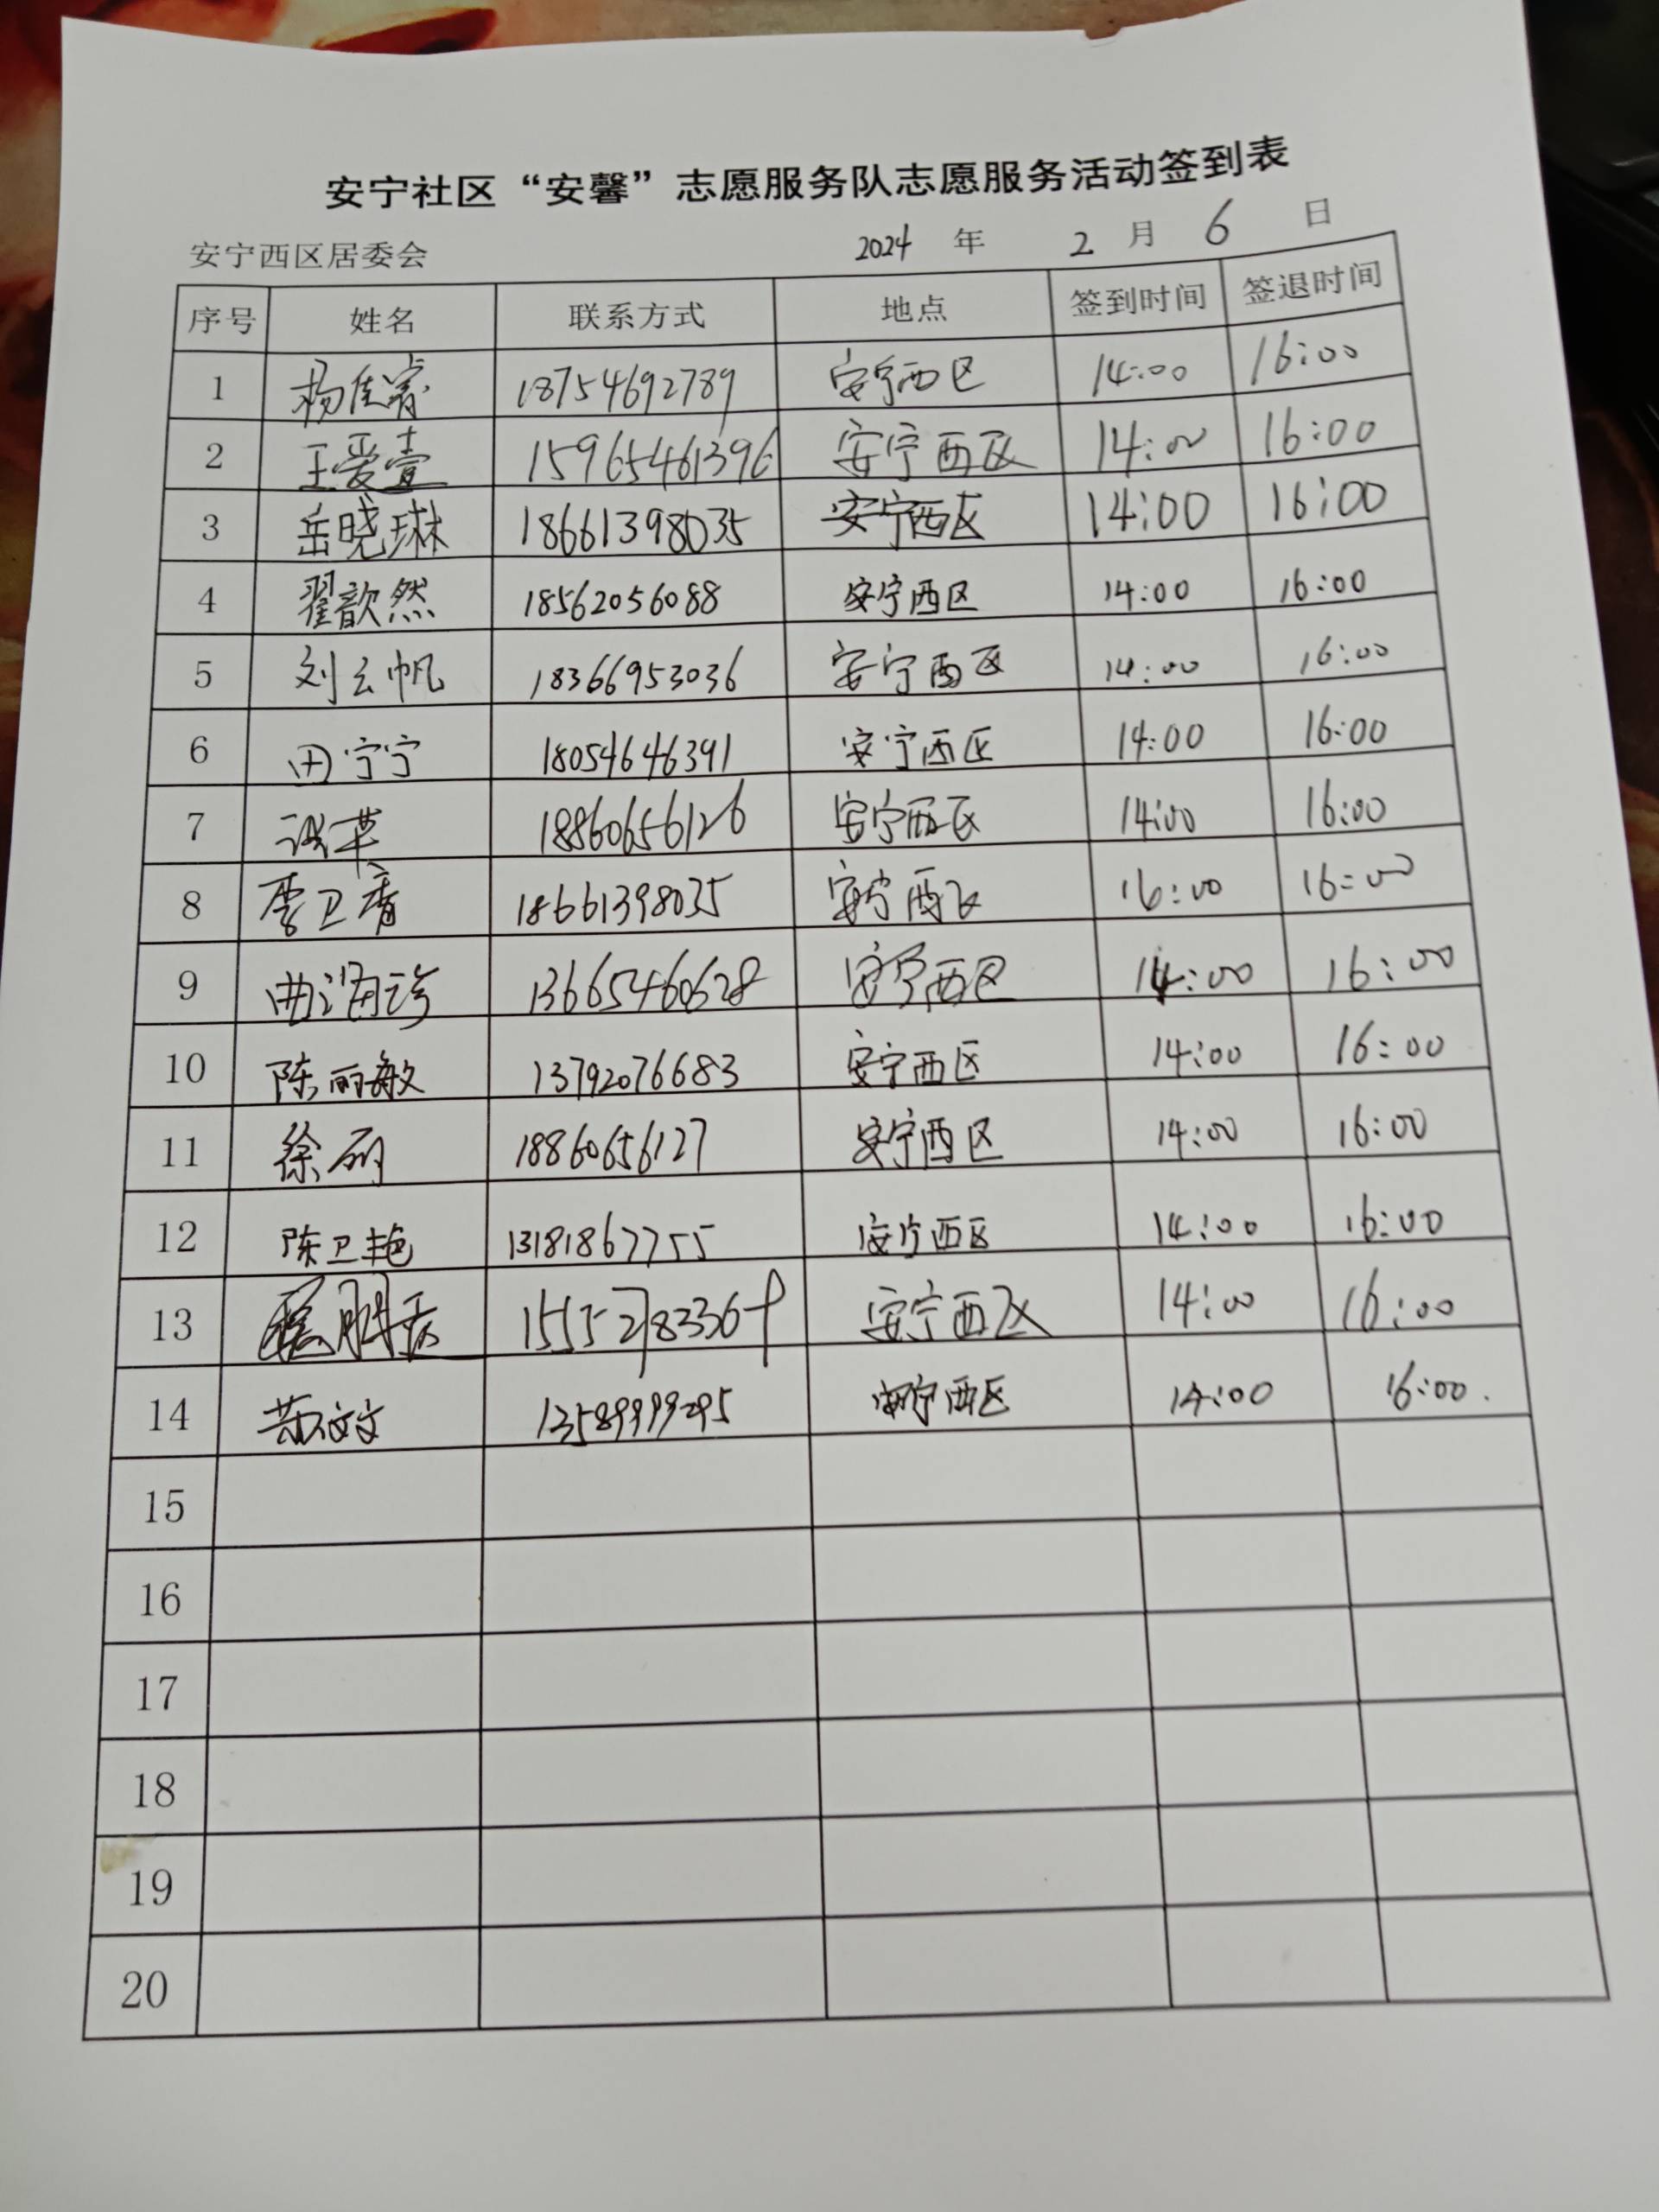 安宁社区“安馨”志愿服务队志愿服务活动签到表
安宁西区居委会 2024 年 2 月 6 日
序号 姓名 联系方式 地点 签到时间 签退时间
1 杨佳睿 18754692789 安宁西区 14:00 16:00
2 王爱壹 15965461396 安宁西区 14:00 16:00
3 岳晓琳 18661398035 安宁西区 14:00 16:00
4 翟歆然 18562056088 安宁西区 14:00 16:00
5 刘云帆 18366953036 安宁西区 14:00 16:00
6 田宁宁 18054646391 安宁西区 14:00 16:00
7 18860656126 安宁西区 14:00 16:00
8 李卫青 18661398035 安宁西区 16:00 16:00
9 13665460628 安宁西区 14:00 16:00
10 陈丽敏 13792076683 安宁西区 14:00 16:00
11 徐丽 18860656127 安宁西区 14:00 16:00
12 陈卫艳 13181867755 安宁西区 14:00 16:00
13 安宁西区 14:00 16:00
14 黄文文 13589999295 安宁西区 14:00 16:00.
15
16
17
18
19
20